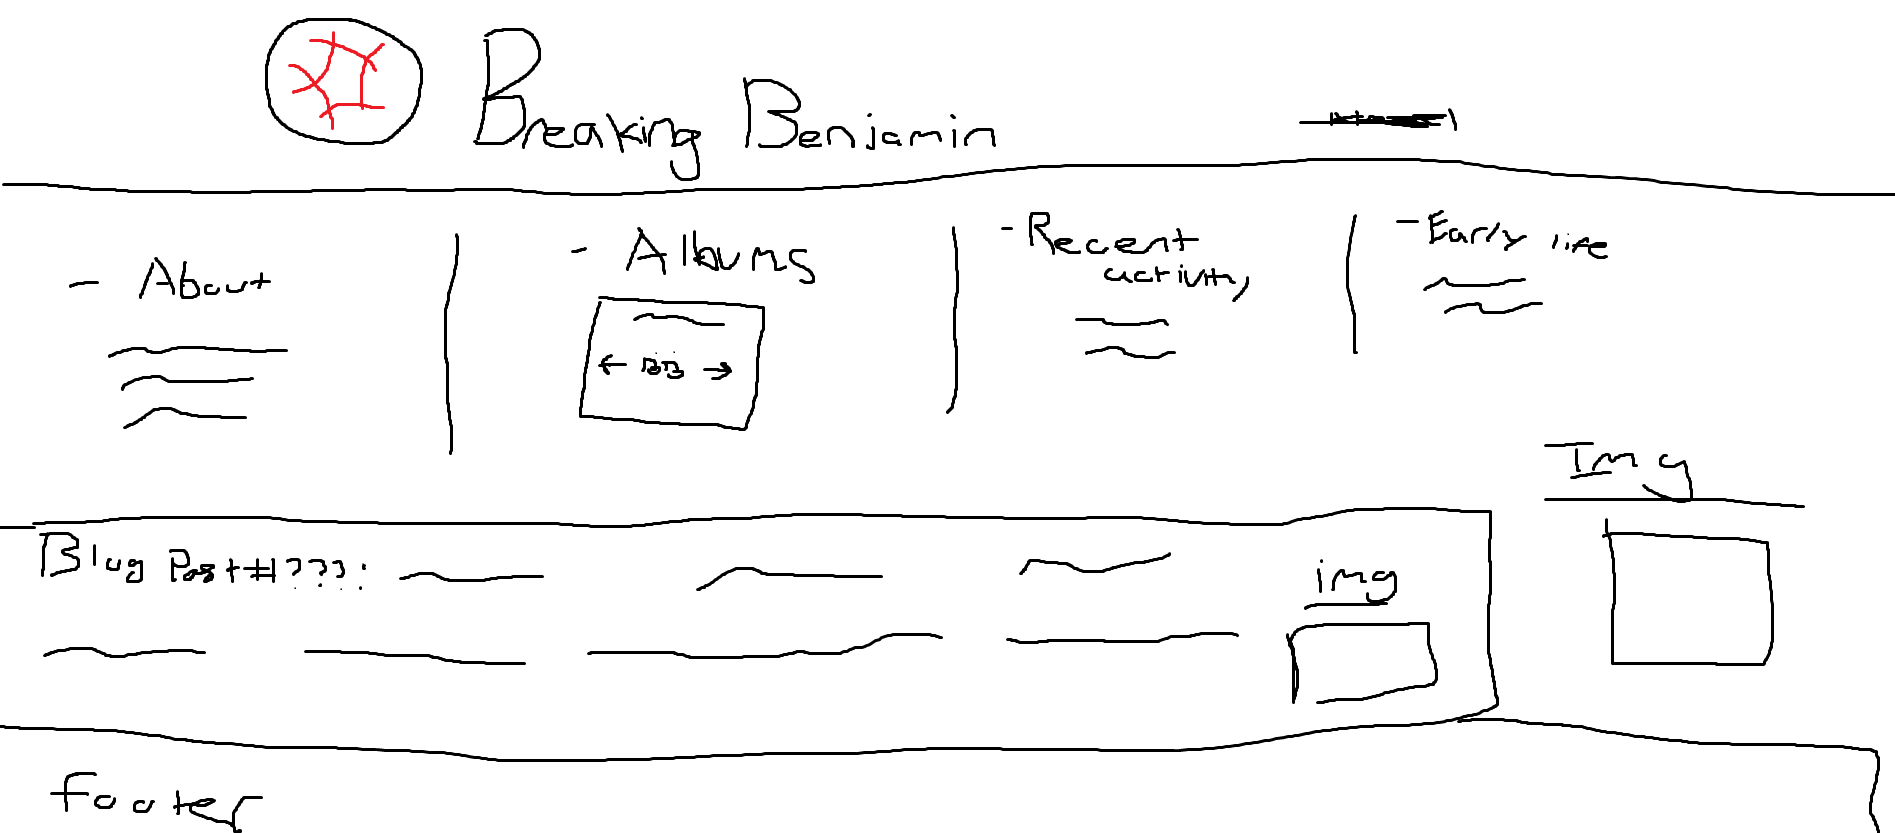 Breaking Benjamin
- About
- Albums
← BB →
- Recent
activity
- Early life
Img
Blog Post #???:
img
footer